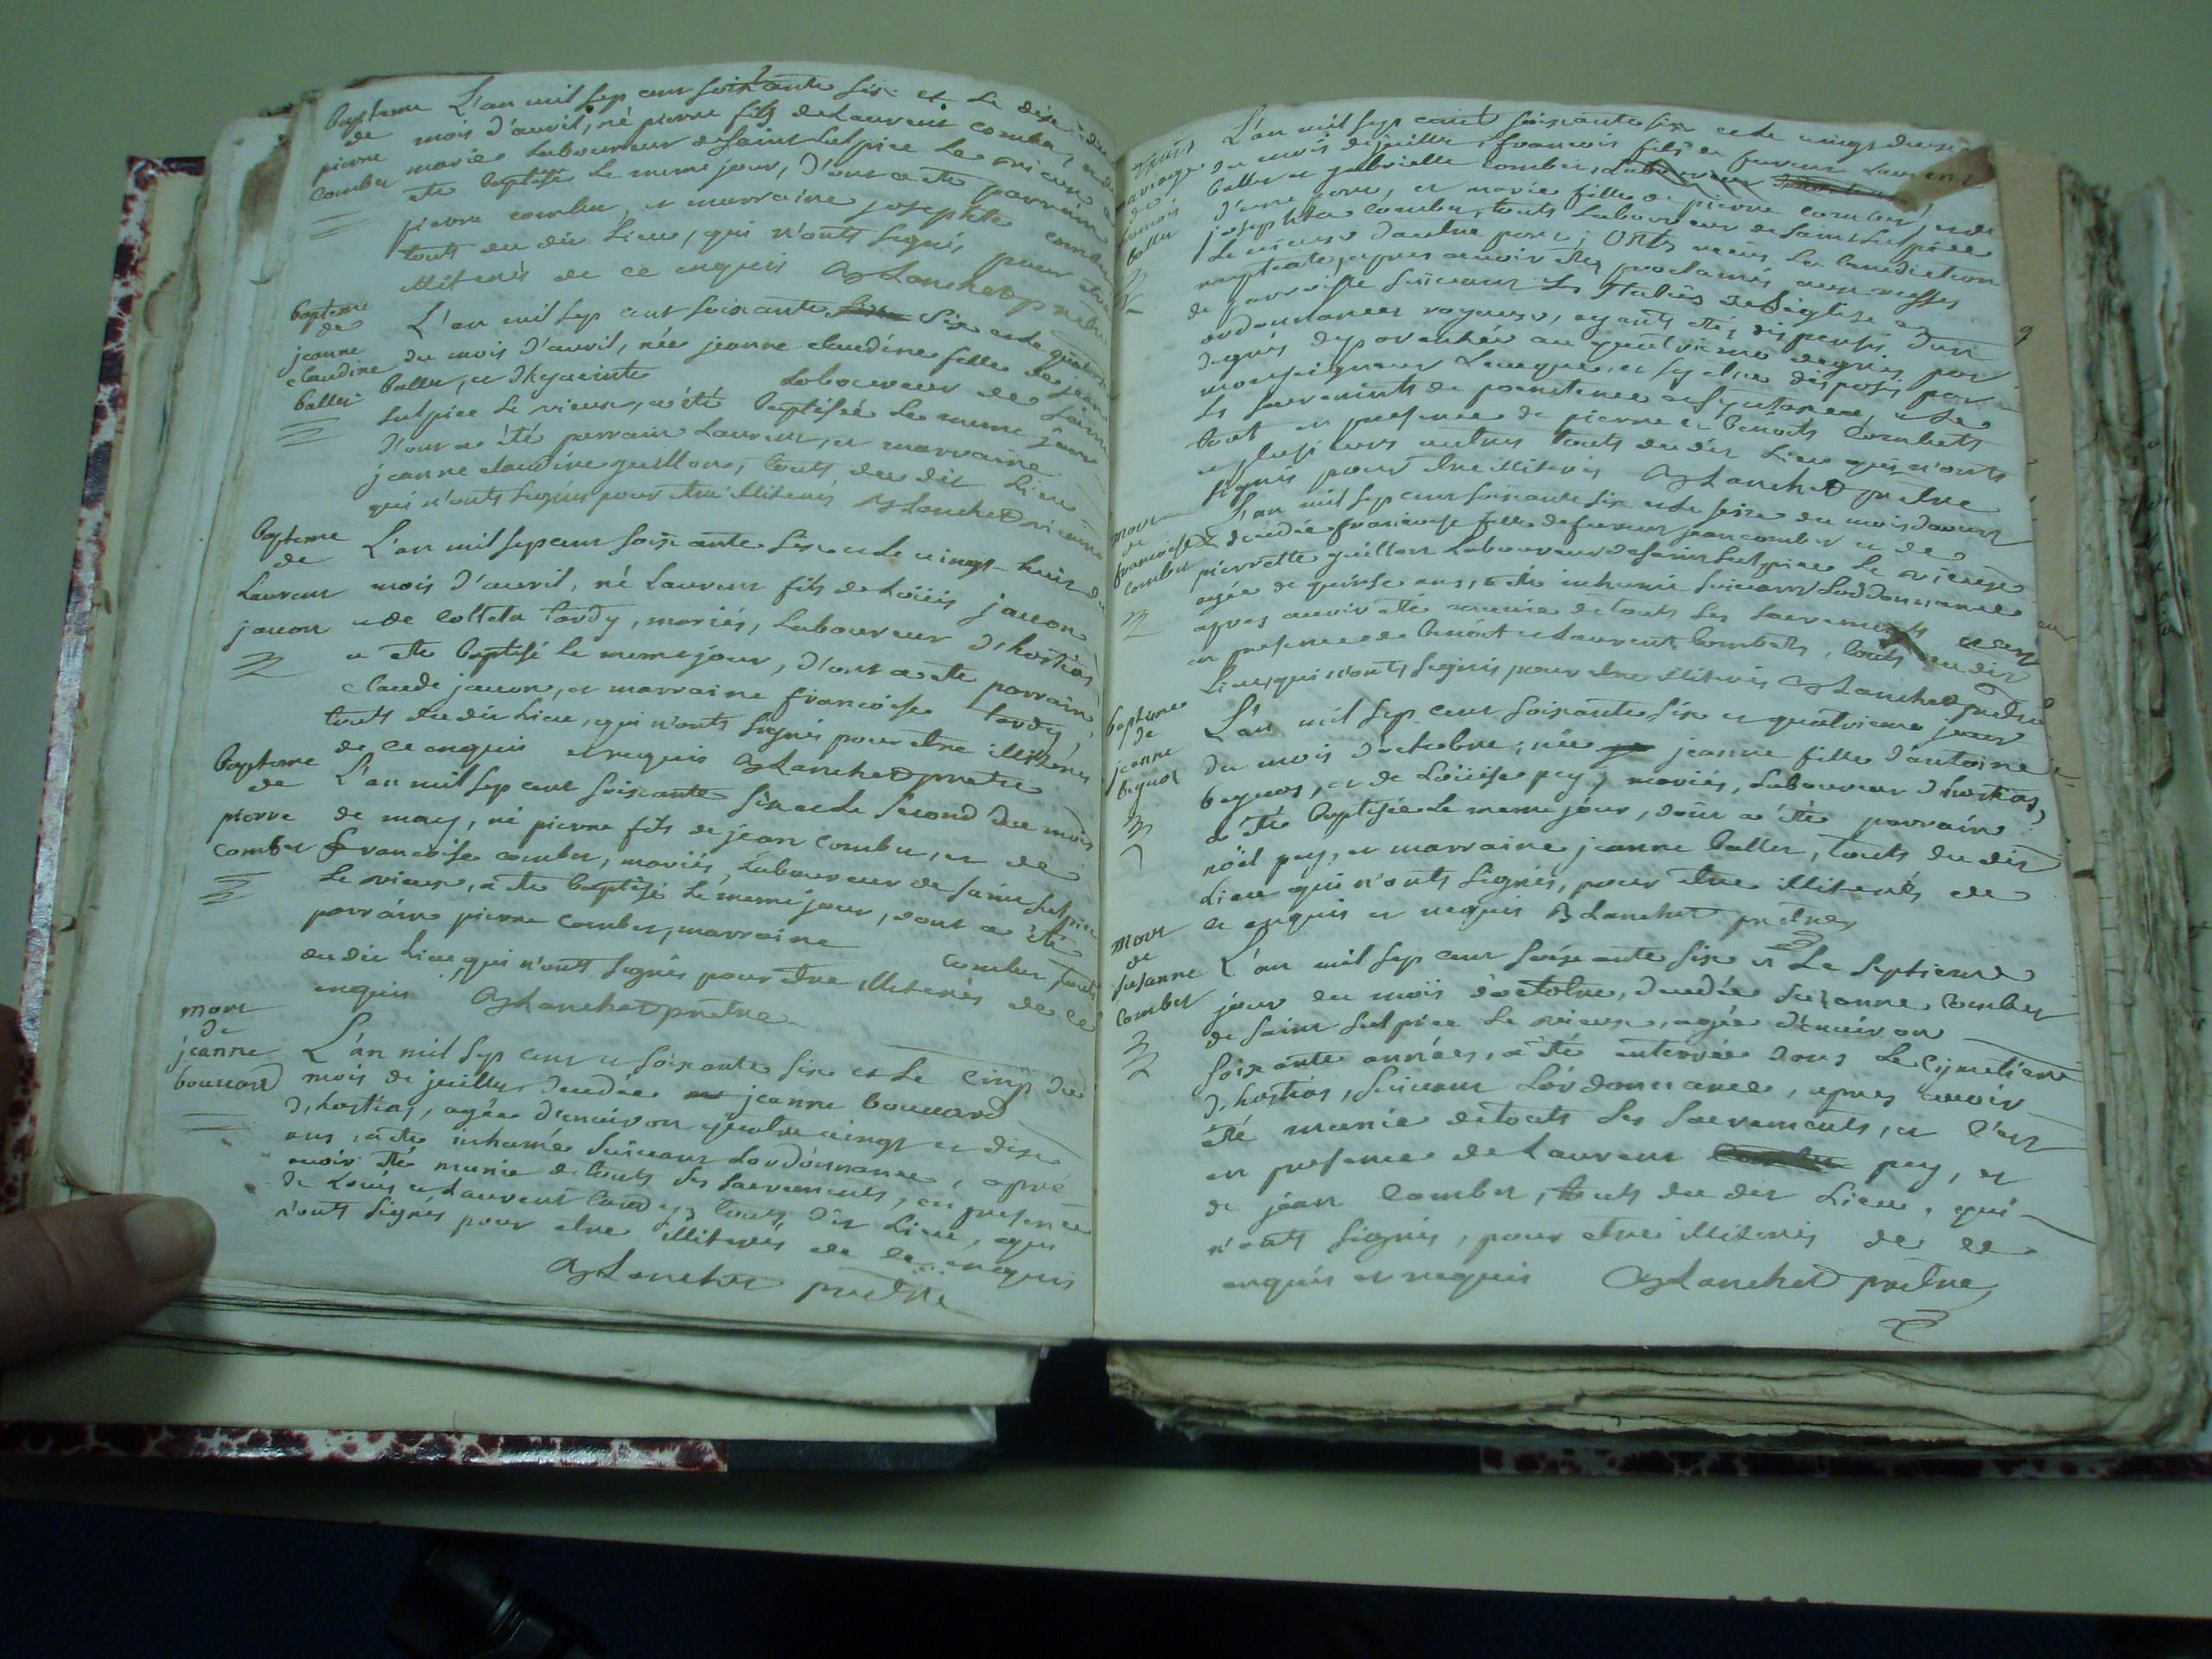 Bapteme
de
pierre
combet
L'an mil sep cent soixante six et le dix du
mois d'avril, né pierre fils de Laurent combet, et de
mariés Laboureur de saint sulpice le vieux, a
été baptisé le meme jour, d'ont a été parrain
pierre combet, et marraine josephte combet
touts du dit Lieu, qui n'onts signés pour etre
illiterés de ce enquis Blanchet pretre
bapteme
de
jeanne
claudine
ballet
L'an mil sep cent soixante six et le
du mois d'avril, née jeanne claudine fille de jean
ballet, et d'hyacinte Laboureur de saint
sulpice le vieux, a été baptisée le meme jour
d'ont a été parrain Laurent, et marraine
jeanne claudine guillon, touts du dit Lieu
qui n'onts signés pour etre illiterés Blanchet vicaire
bapteme
de
Laurent
jacon
L'an mil sep cent soixante six et le vingt-huit du
mois d'avril, né Laurent fils de Loüis jacon
et de colleta tardy, mariés, Laboureur d'hostias
a été baptisé le meme jour, d'ont a été parrain
claude jacon, et marraine francoise tardy,
touts du dit Lieu, qui n'onts signés pour etre illiterés
de ce enquis et requis Blanchet pretre
bapteme
de
pierre
combet
L'an mil sep cent soixante six et le second du mois
de may, né pierre fils de jean combet, et de
francoise combet, mariés, Laboureur de saint sulpice
le vieux, a été baptisé le meme jour, dont a été
parrain pierre combet, marraine combet touts
du dit Lieu, qui n'ont signés pour etre illiterés de ce
enquis Blanchet pretre
mort
de
jeanne
bouvard
L'an mil sep cent et soixante six et le cinq du
mois de jeuillet, deudée jeanne bouvard
d'hostias, agée d'environ quatre vingt et dix
ans, a été inhumée suivant Lordonnance, apré
avoir été munie de touts les sacrements, en presence
de Loüis et Laurent tardy, touts dit Lieu, qui
n'onts signés pour etre illiterés de ce enquis
Blanchet pretre
mariage
de
francois
ballet
L'an mil sep cent soixante six et le vingt deux
du mois de jeuillet, francois fils de furent Laurent
ballet et gabrielle combet,
d'une part, et marie fille de pierre combet, et de
josephta combet, touts Laboureur de saint sulpice
le vieux d'autre part; Onts recus la benediction
nuptiale, apres avoir étés proclamés aux messes
de parroisse suivant les statuts de L'eglise et
ordonnances royaux, ayants étés dispensés d'un
degrés de parentée au quatrieme degrés par
monseigneur L'eveque, et s'y etre disposés par
les sacrements de poenitence et d'eucharistie, Le
tout en presence de pierre et benoit Combets
et plusieurs autres touts du dit Lieu qui n'onts
signés pour etre illiterés Blanchet pretre
mort
de
francoise
combet
L'an mil sep cent soixante six et le seize du mois d'aoust
deudée francoise fille de furent jean combet et de
pierrette guillon Laboureur de saint sulpice le vieux
agée de quinse ans, a été inhumée suivant Lordonnance
apres avoir été munie de touts les sacrements et c'est
en presence de benoit et Laurent Combets, touts du dit
Lieu, qui n'onts signés pour etre illiterés Blanchet pretre
bapteme
de
jeanne
beguot
L'an mil sep cent soixante six et quatrieme jour
du mois d'octobre, née jeanne fille d'antoine
beguot, et de Loüise pey, mariés, Laboureur d'hostias,
a été baptisée le meme jour, dont a été parrain
noël pey, et marraine jeanne ballet, touts du dit
Lieu qui n'onts signés, pour etre illiterés de
ce enquis et requis Blanchet pretre
mort
de
susanne
combet
L'an mil sep cent soixante six et Le septieme
jour du mois d'octobre, deudée susanne combet
de saint sulpice le vieux, agée d'environ
soixante années, a été enterrée dans Le cymetiere
d'hostias, suivant Lordonnance, apres avoir
été munie de touts les sacrements, et c'est
en presence de Laurent pey, et
de jean combet, touts du dit Lieu, qui
n'onts signés, pour etre illiterés de ce
enquis et requis Blanchet pretre